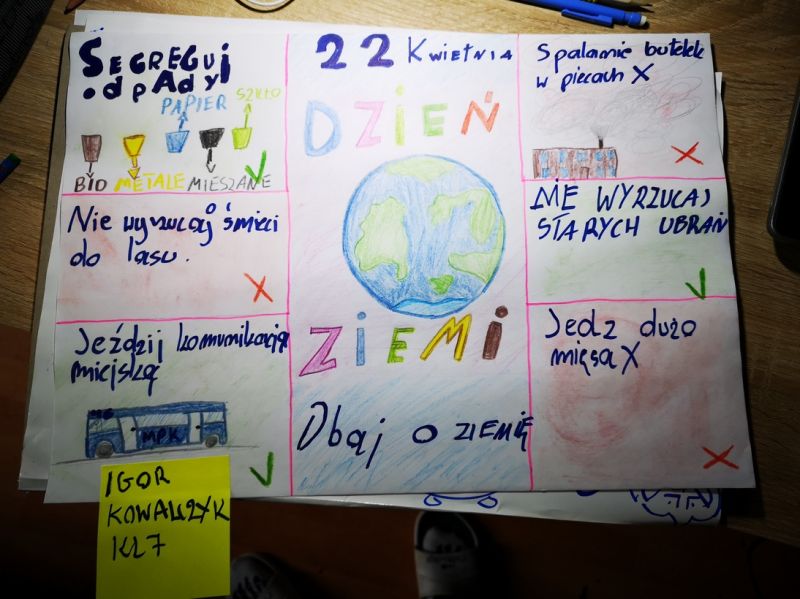 SEGREGUJ
odpAdy
PAPIER
SZKŁO
BIO
METALE
MIESZANE
Nie wyrzucaj śmieci
do lasu.
Jeździj komunikacją
miejską
MPK
IGOR
KOWALCZYK
KL7
22 Kwietnia
DZIEŃ
ZIEMi
Dbaj o ZIEMIĘ
Spalanie butelek
w piecach X
NIE WYRZUCAJ
STARYCH UBRAŃ
Jedz dużo
mięsa X